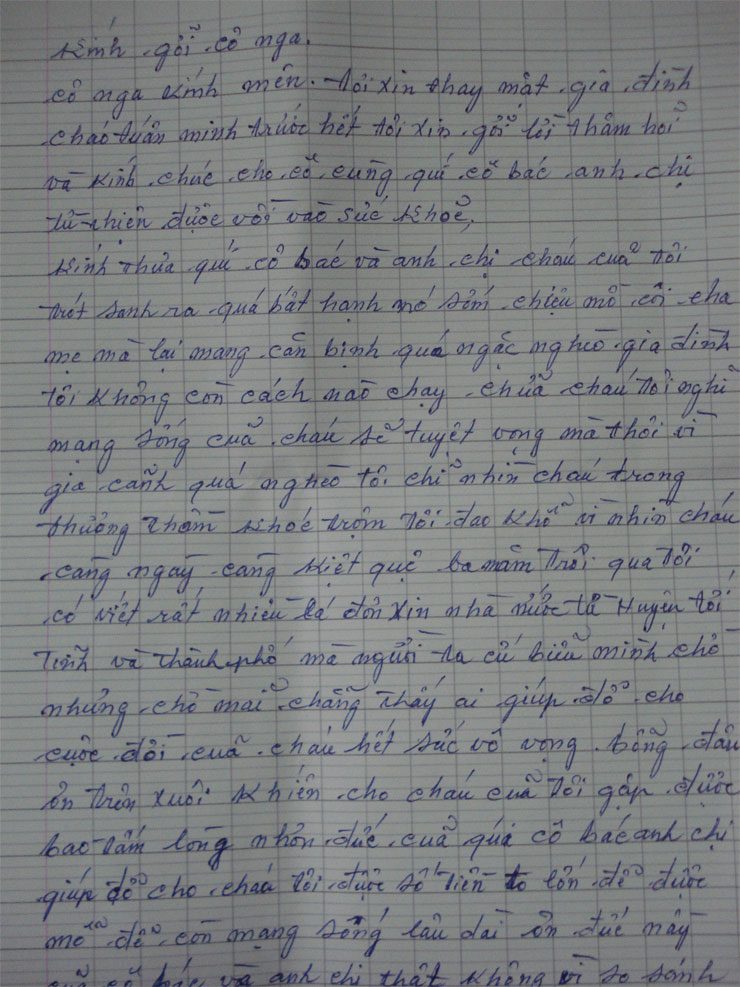 Kính gỡi cô nga.
cô nga kính mến. Tôi xin thay mặt gia đình
cháo tuấn minh trước hết tôi xin gỡi lời thăm hỏi
và kính chúc cho cô cung quí cô bác anh chị
từ thiện được vồi vào sức khoẽ.
Kính thưa quí cô bác và anh chị cháu cuã tôi
trót sanh ra quá bất hạnh nó sớm chịu mồ côi cha
mẹ mà lại mang căn bịnh quá ngặc nghèo gia đình
tôi không còn cách nào chạy chữa cháu tôi nghĩ
mạng sống cuã cháu sẽ tuyệt vọng mà thôi vì
gia cãnh quá nghèo tôi chĩ nhìn cháu trong
thương thầm khóc trộm tôi đao khỗ vì nhìn cháu
càng ngày càng kiệt quệ ba năm trôi qua tôi
có viết rất nhiều lá đơn xin nhà nước từ Huyện tới
Tĩnh và thành phố mà người ta cứ biểu mình chờ
nhưng chờ mãi chẵng thấy ai giúp đỡ cho
cuộc đời cuã cháu hết sức vô vọng bỗng đâu
ơn trên xuôi khiến cho cháu cuã tôi gặp được
bao tấm lòng nhơn đức cuã quí cô bác anh chị
giúp đỡ cho cháu tôi được số tiền to lớn để được
mỗ để còn mạng sống lâu dài ơn đức này
cuã cô bác và anh chị thật không vì so sánh